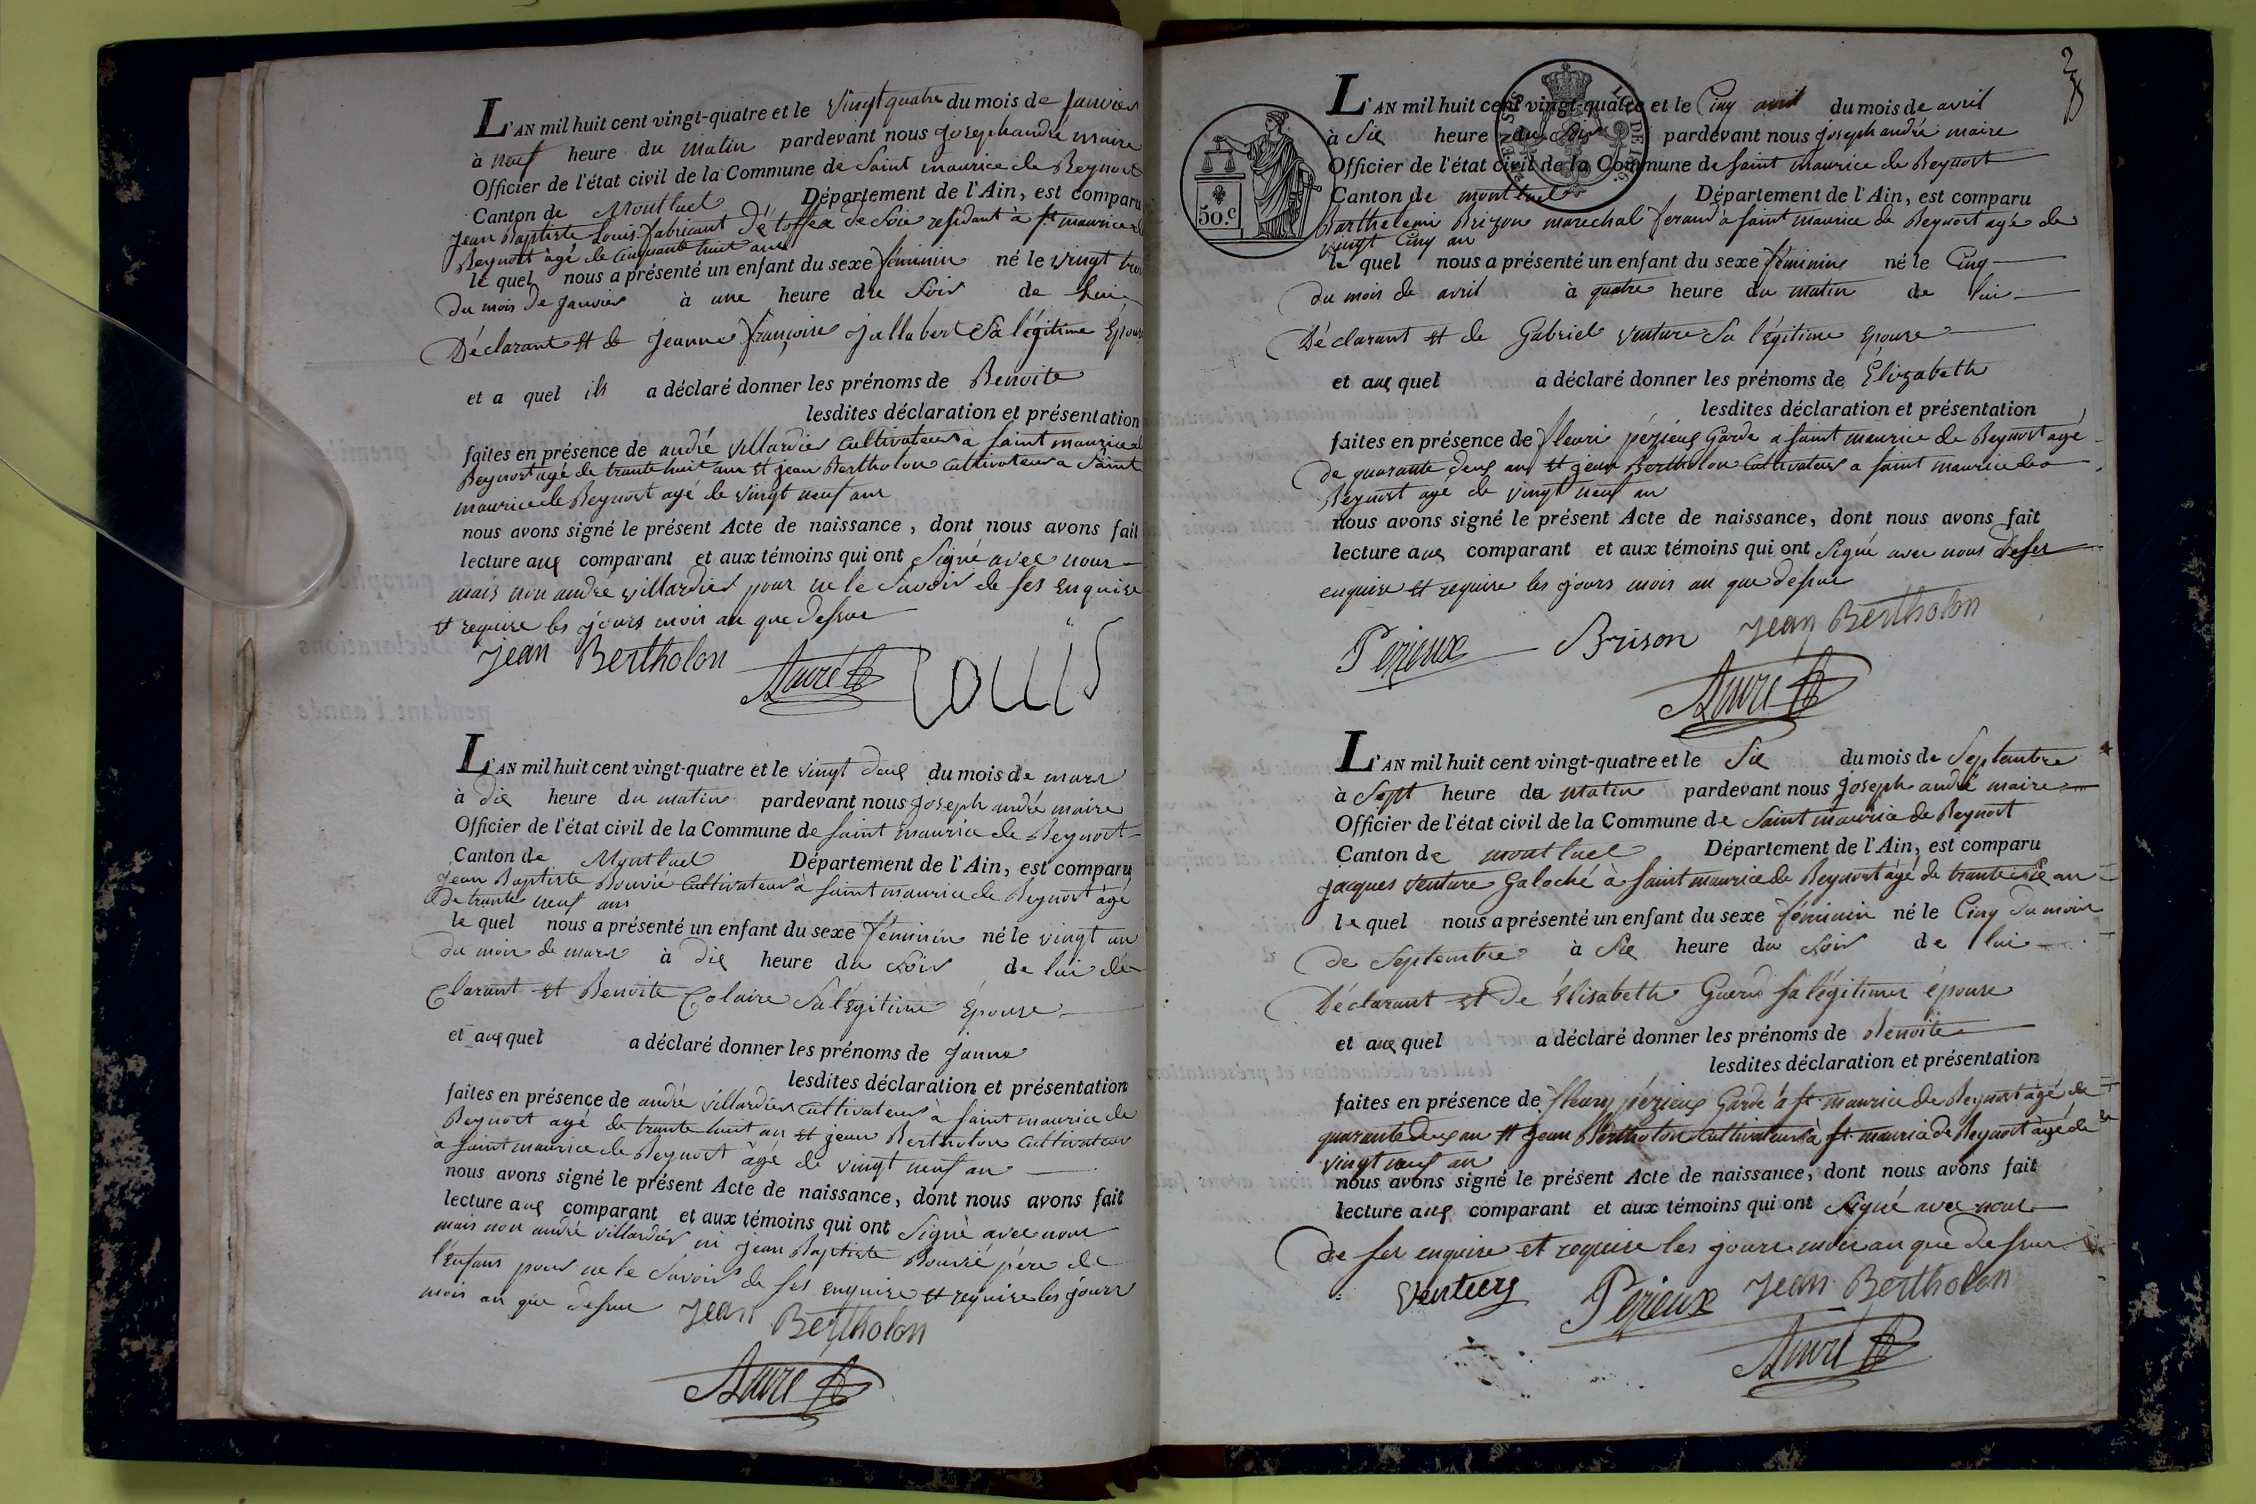 L'AN mil huit cent vingt-quatre et le vingt quatre du mois de janvier
à neuf heure du matin pardevant nous joseph andré maire
Officier de l'état civil de la Commune de saint maurice de Beynost
Canton de Montluel Département de l'Ain, est comparu
jean Baptiste Louis fabricant d'étoffe de soie residant à st maurice de
Beynost agé de cinquante huit ans
le quel nous a présenté un enfant du sexe féminin né le vingt trois
du mois de janvier à une heure du soir de lui
Déclarant et de jeanne françoise jallabert sa légitime Epouse
et a quel ils a déclaré donner les prénoms de Benoite
lesdites déclaration et présentation
faites en présence de andré villardier cultivateur à saint maurice de
Beynost agé de trante huit ans et jean Bertholon cultivateur a saint
maurice de Beynost agé de vingt neuf ans
nous avons signé le présent Acte de naissance, dont nous avons fait
lecture aux comparant et aux témoins qui ont signé avec nous
mais non andré villardier pour ne le savoir de ses enquise
et requise les jours mois an que dessus
Jean Bertholon André Louis
L'AN mil huit cent vingt-quatre et le vingt deux du mois de mars
à dix heure du matin pardevant nous joseph andré maire
Officier de l'état civil de la Commune de saint maurice de Beynost
Canton de Montluel Département de l'Ain, est comparu
jean Baptiste Bouvié cultivateur à saint maurice de Beynost àgé
de trante neuf ans
le quel nous a présenté un enfant du sexe féminin né le vingt un
du mois de mars à dix heure du soir de lui dé
clarant et Benoite Colaire sa légitime épouse
et aux quel a déclaré donner les prénoms de janne
lesdites déclaration et présentation
faites en présence de andré villardier cultivateur à saint maurice de
Beynost agé de trante huit an et jean Bertholon cultivateur
à saint maurice de Beynost àgé de vingt neuf an
nous avons signé le présent Acte de naissance, dont nous avons fait
lecture aux comparant et aux témoins qui ont signé avec nous
mais non andré villardier ni jean Baptiste Bouvié père de
l'enfant pour ne le savoir de ses enquise et requise les jours
mois an que dessus Jean Bertholon
André
L'AN mil huit cent vingt-quatre et le Cinq avril du mois de avril
à six heure du soir pardevant nous joseph andré maire
Officier de l'état civil de la Commune de saint maurice de Beynost
Canton de montluel Département de l'Ain, est comparu
50.c
Barthelemi Brizon marechal ferand à saint maurice de Beynost agé de
vingt cinq an
le quel nous a présenté un enfant du sexe féminin né le Cinq
du mois de avril à quatre heure du matin de lui
Déclarant et de Gabriel venture sa légitime épouse
et aux quel a déclaré donner les prénoms de Élizabeth
lesdites déclaration et présentation
faites en présence de fleuri périeux Garde a saint maurice de Beynost agé
de quarante deux an et jean Bertholon cultivateur a saint maurice de
Beynost agé de vingt neuf an
nous avons signé le présent Acte de naissance, dont nous avons fait
lecture aux comparant et aux témoins qui ont signé avec nous de ses
enquise et requise les jours mois an que dessus
Perieux Brison Jean Bertholon
André
L'AN mil huit cent vingt-quatre et le six du mois de septembre
à sept heure du matin pardevant nous joseph andré maire
Officier de l'état civil de la Commune de saint maurice de Beynost
Canton de montluel Département de l'Ain, est comparu
jacques venture Galoché à saint maurice de Beynost àgé de trante six an
le quel nous a présenté un enfant du sexe féminin né le Cinq du mois
de septembre à six heure du soir de lui
Déclarant et de élisabeth sa légitime épouse
et aux quel a déclaré donner les prénoms de Benoite
lesdites déclaration et présentation
faites en présence de fleury périeux Garde à st maurice de Beynost àgé de
quarante deux an et jean Bertholon cultivateur à st maurice de Beynost àgé de
vingt neuf an
nous avons signé le présent Acte de naissance, dont nous avons fait
lecture aux comparant et aux témoins qui ont signé avec nous
de ses enquise et requise les jours mois an que dessus
Perieux Jean Bertholon
André